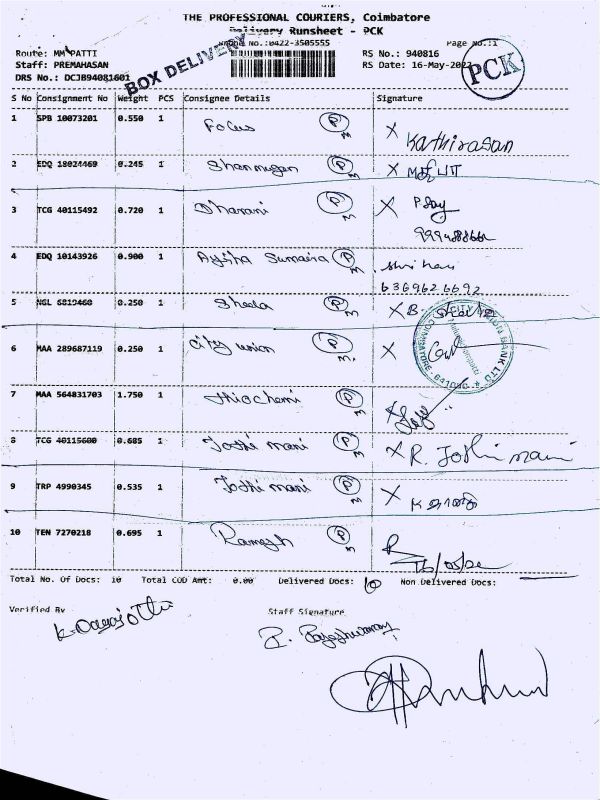 THE PROFESSIONAL COURIERS, Coimbatore
Delivery Runsheet - PCK
Phone No.:0422-3505555
Page No.:1
Route: MM PATTI
RS No.: 940816
Staff: PREMAHASAN
RS Date: 16-May-2022
DRS No.: DCJB94081601
BOX DELIVERY
PCK
S No Consignment No Weight PCS Consignee Details Signature
1 SPB 10073201 0.550 1 Focus P M X Kathirasan
2 EDQ 18024469 0.245 1 Shanmugan P M X
3 TCG 40115492 0.720 1 Dharani P M X
4 EDQ 10143926 0.900 1 Aysha Sumaira P M
6369626692
5 NGL 6819460 0.250 1 Sheela P M X B.
6 MAA 289687119 0.250 1 City union P M. X
CITY UNION BANK LTD.
COIMBATORE - 641
7 MAA 564831703 1.750 1 thiochemi P M X
8 TCG 40115600 0.685 1 Joshi mani P M X R. Joshi mani
9 TRP 4990345 0.535 1 Joshi mani P M X
10 TEN 7270218 0.695 1 Ramesh P M R
Total No. Of Docs: 10 Total COD Amt: 0.00 Delivered Docs: 10 Non Delivered Docs:
Verified By
Staff Signature